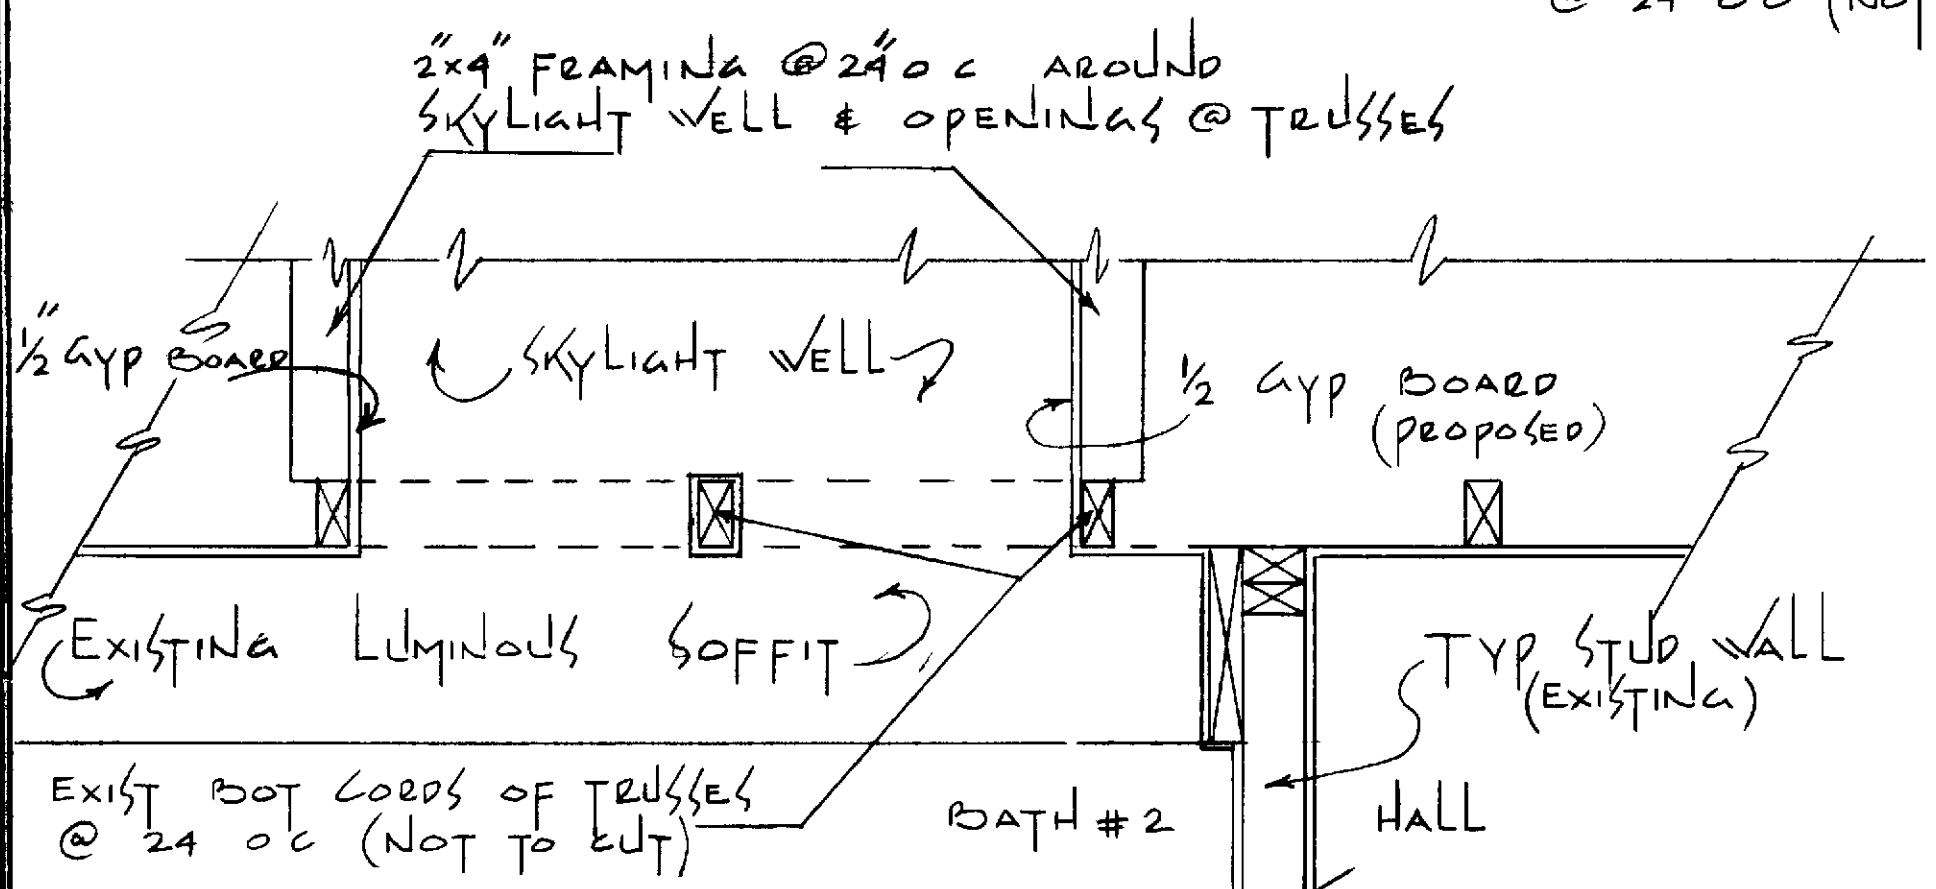 @ 24 O C (NOT
2"x4" FRAMING @ 24" O C AROUND
SKYLIGHT WELL & OPENINGS @ TRUSSES
1/2" GYP BOARD
SKYLIGHT WELL
1/2 GYP BOARD
(PROPOSED)
EXISTING LUMINOUS SOFFIT
TYP STUD WALL
(EXISTING)
EXIST BOT CORDS OF TRUSSES
@ 24 O C (NOT TO CUT)
BATH #2
HALL